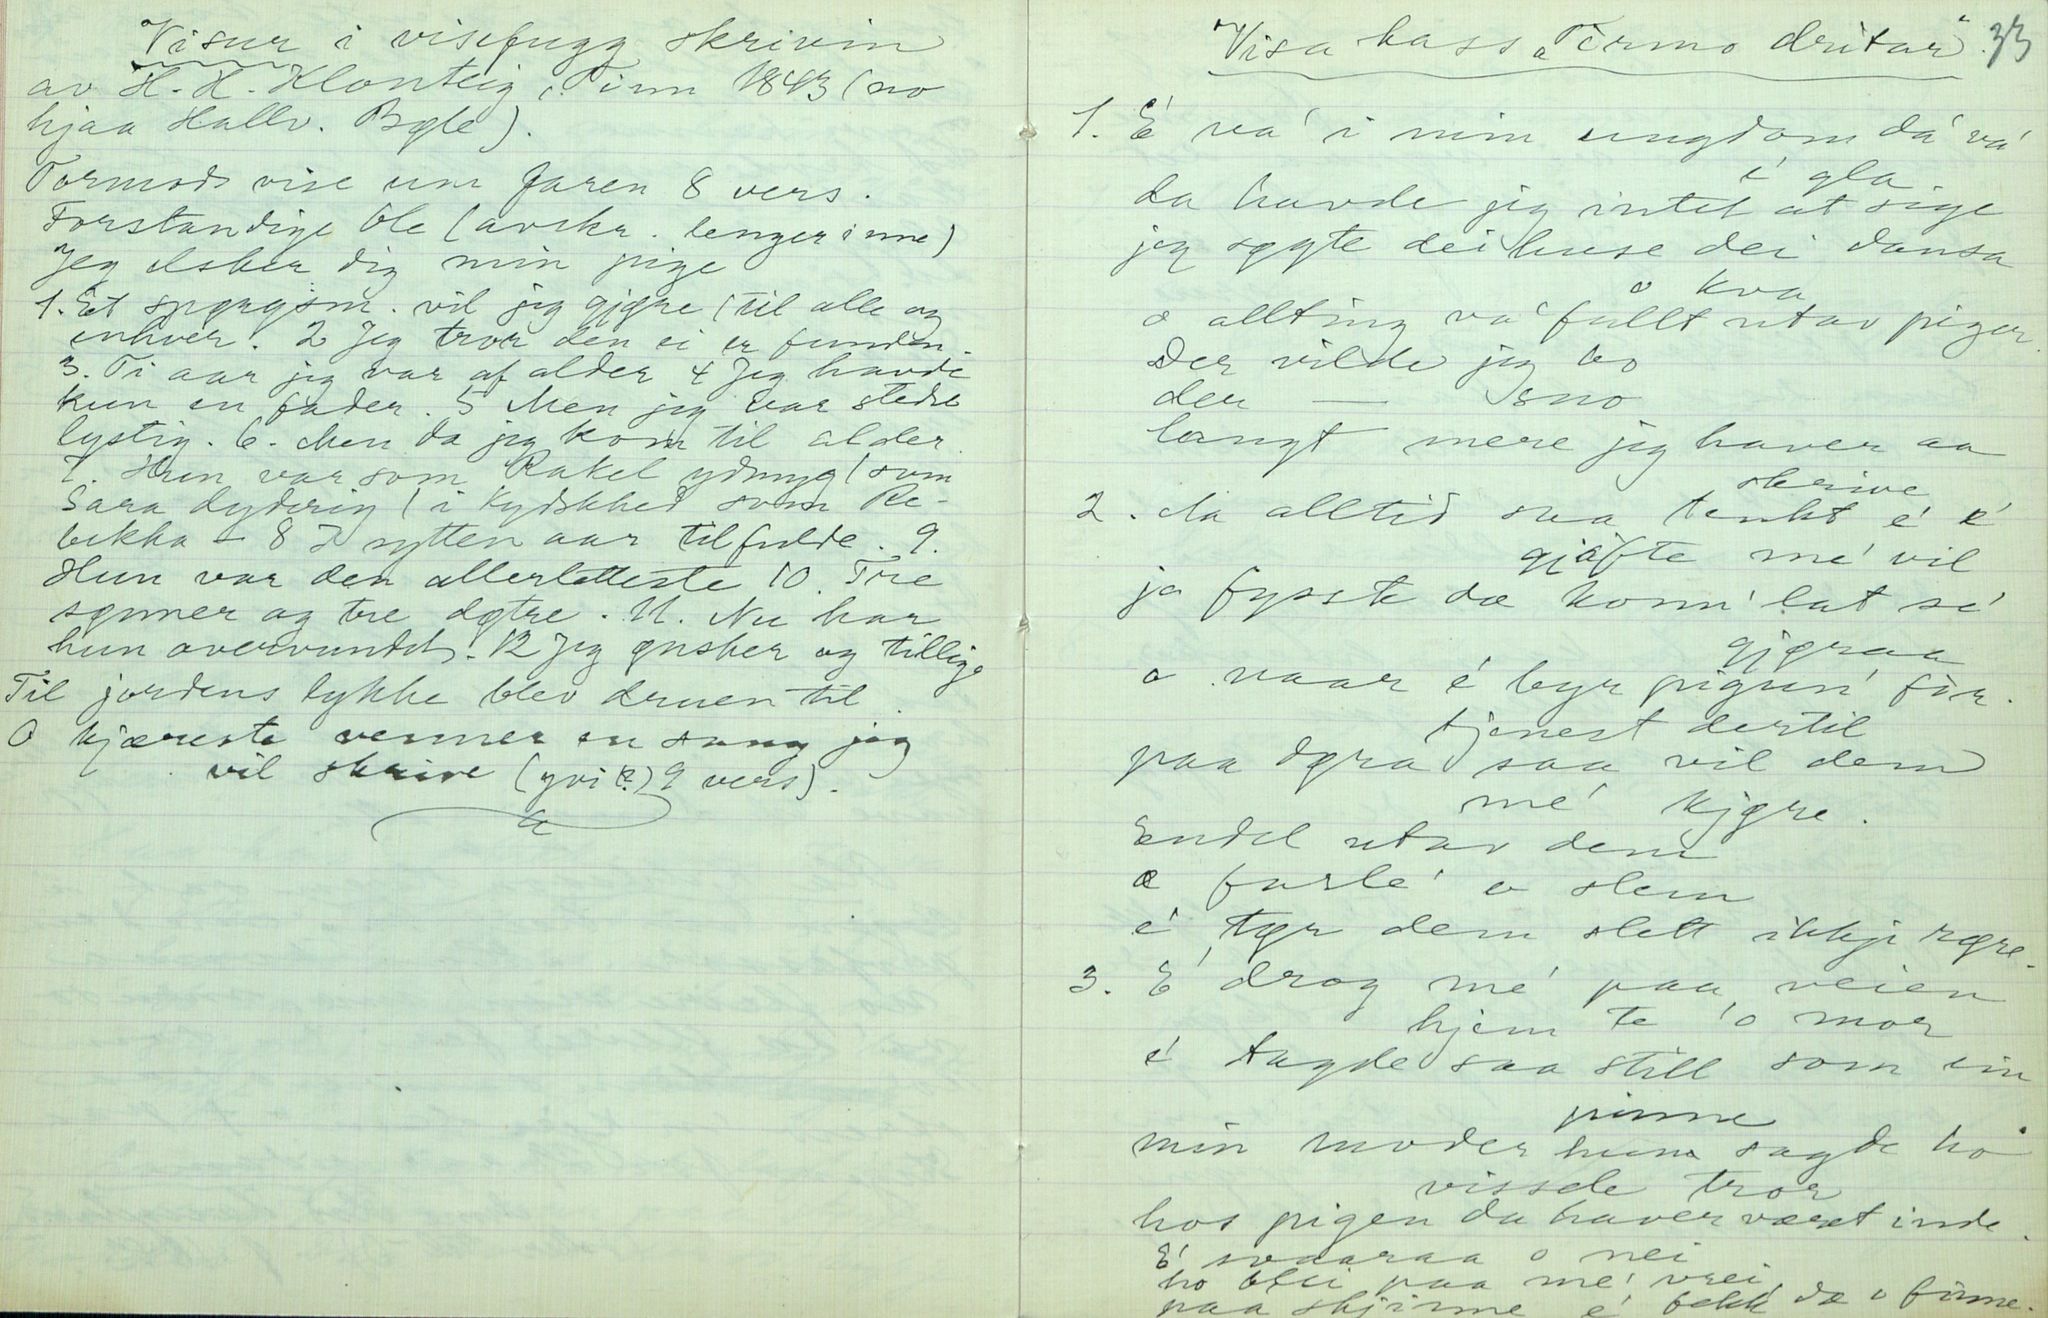 Visur i visefugg skrivin
av H. H. Klonteig, Tinn 1843 (no
hjaa Hallv. Bøle).
Tormods vise um faren 8 vers.
Forstandige Ole (avskr. lenger inne)
Jeg elsker dig min pige
1. Et spørgsm. vil jeg gjøre (til alle og
enhver. 2 Jeg tror den ei er funden.
3. Ti aar jeg var af alder 4 Jeg havde
kun en fader. 5 Men jeg var stedse
lystig. 6. Men da jeg kom til alder
7. Hun var som Rakel ydmyg (som
Sara dyderig (i kydskhed som Re-
bekka – 8 I sytten aar tilfulde. 9.
Hun var den allerletteste 10. Tre
sønner og tre døtre. 11. Nu har
hun overvundet. 12 Jeg ønsker og tillige
Til jordens lykke blev druen til.
O kjæreste venner en sang jeg
vil skrive (yvi(?) 9 vers).
33
"Visa hass Tormo dritar"
1. É va' i min ungdom dá va'
é gla
da havde jeg intet at sige
jeg søgte dei huse dei dansa
o kva
o allting va' fullt utav piger.
Der vilde jeg bo
der — sno
langt mere jeg haver aa
skrive
2. da alltid saa tenkt é é
gjifte mé vil
ja fysste dæ konn' lat sé
gjøraa
o naar é byr pigun' fin.
tjenest dertil
paa døra saa vil dem
mé kjøre.
Endel utav dem
æ farlé o slem
é tør dem slett ikkje røre.
3. É drog mé paa veien
hjem te 'o mor
é tagde saa still som ein
pinne
min moder hun sagde ho
vissele tror
hos pigen du haver været inde.
É svaaraa o nei
ho blei paa mé vrei
paa skjinne é fekk dæ o finne.